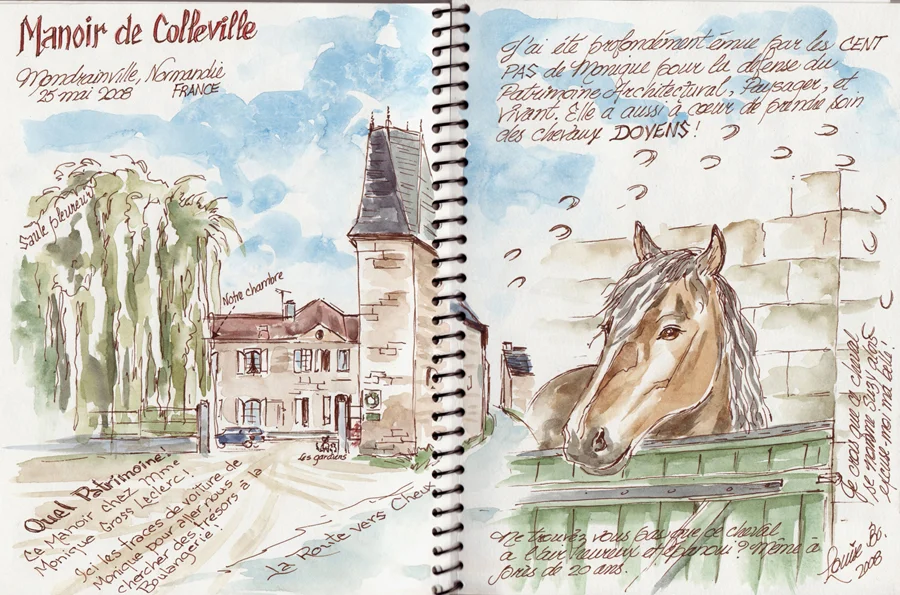 Manoir de Colleville
Mondrainville, Normandie
25 mai 2008 FRANCE
Saule pleureur
Notre chambre
Les gardiens
Quel Patrimoine!
Ce Manoir chez Mme
Monique Gross Leclerc!
Ici les traces de voiture de
Monique pour aller nous
chercher des trésors à la
Boulangerie!
La Route vers Cheux
J'ai été profondément émue par les CENT
PAS de Monique pour la défense du
Patrimoine Architectural, Paysager, et
Vivant. Elle a aussi à cœur de prendre soin
des chevaux DOYENS!
Je crois que ce cheval
se nomme
excuse-moi ma belle!
Ne trouvez vous pas que ce cheval
a l'air heureux et épanoui? Même à
près de 20 ans.
Louise Bo.
2008